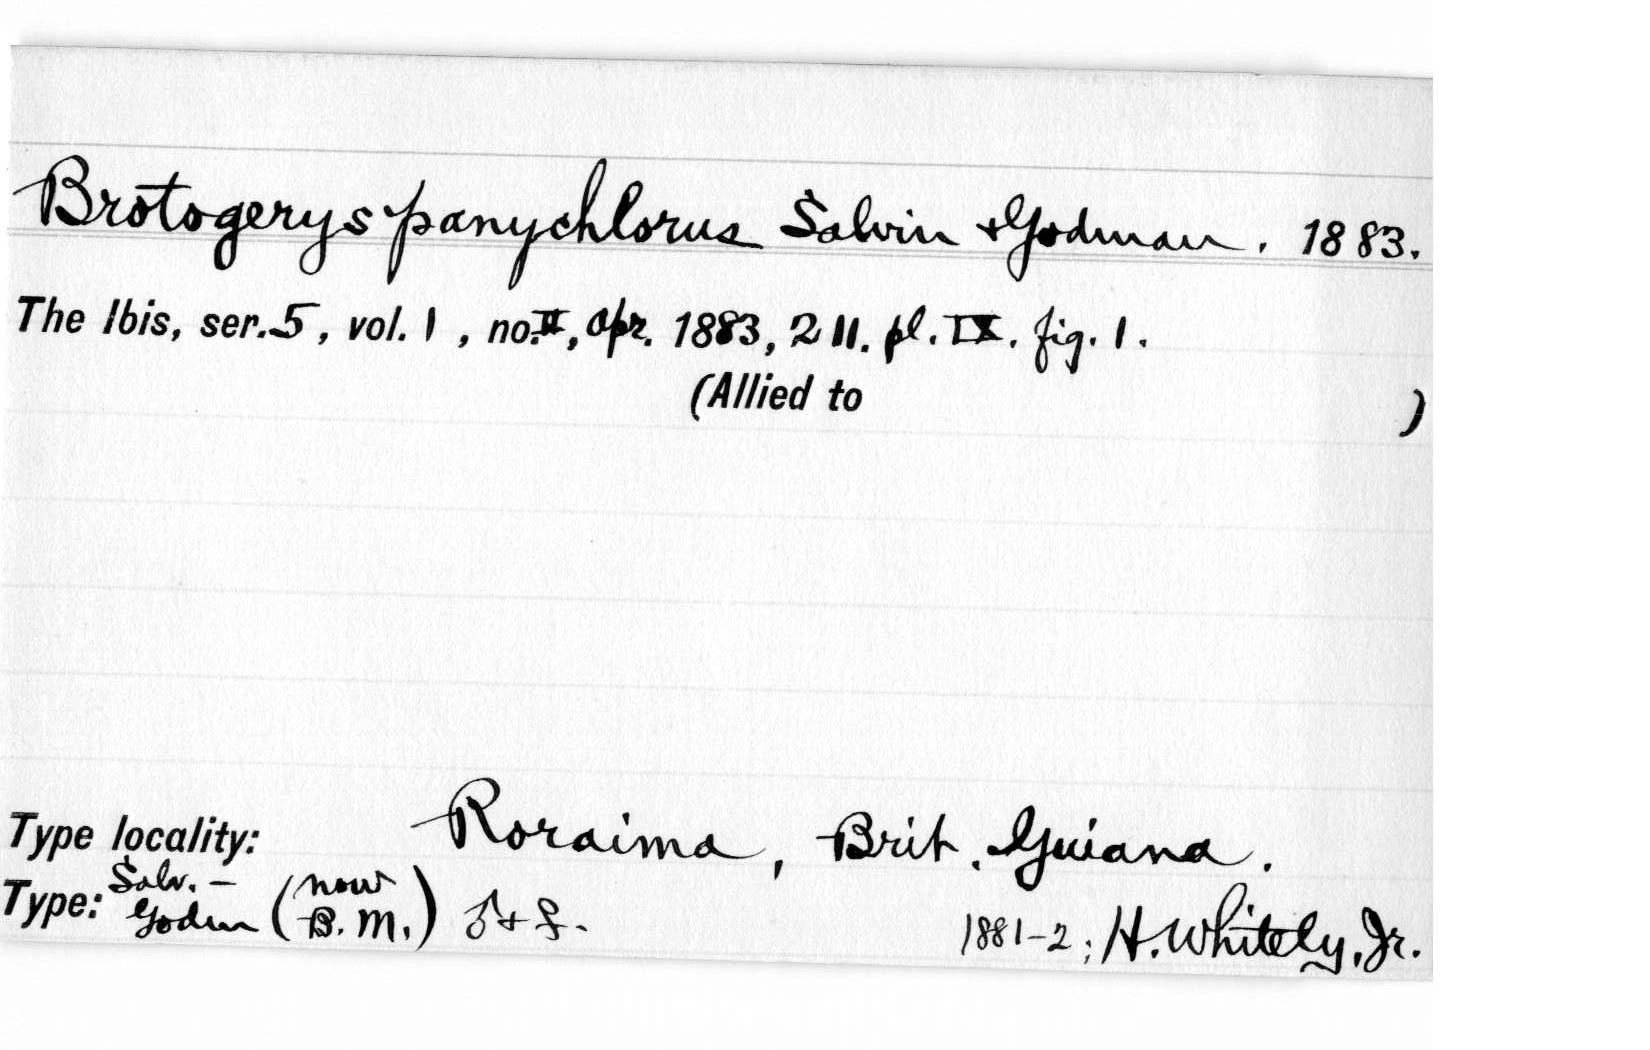 Brotogerys panychlorus Salvin + Godman. 1883.
The Ibis, ser. 5, vol. 1, no. II, Apr. 1883, 211. pl. IX. fig. 1.
(Allied to )
Type locality: Roraima, Brit. Guiana.
Type: Salv. – Godm (now B.M.) ♂ + ♀. 1881-2; H. Whitely, Jr.